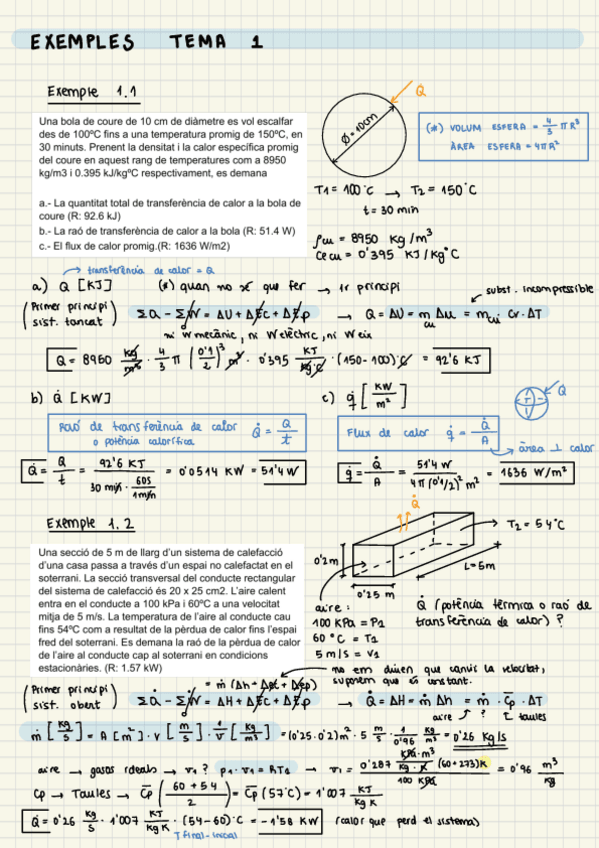 EXEMPLES TEMA 1
Exemple 1.1
Una bola de coure de 10 cm de diàmetre es vol escalfar
des de 100ºC fins a una temperatura promig de 150ºC, en
30 minuts. Prenent la densitat i la calor específica promig
del coure en aquest rang de temperatures com a 8950
kg/m3 i 0.395 kJ/kgºC respectivament, es demana
a.- La quantitat total de transferència de calor a la bola de
coure (R: 92.6 kJ)
b.- La raó de transferència de calor a la bola (R: 51.4 W)
c.- El flux de calor promig.(R: 1636 W/m2)
Q̇
Ø = 10cm
(*) VOLUM ESFERA = 4/3 π R³
ÀREA ESFERA = 4πR²
T1 = 100°C → T2 = 150°C
t = 30 min
ρcu = 8950 Kg/m³
Ce cu = 0'395 KJ/Kg°C
→ transferència de calor = Q
a) Q [KJ] (*) quan no sé que fer → 1r principi
subst. incompressible
(Primer principi sist. tancat) ΣQ - ΣW = ΔU + ΔEc + ΔEp → Q = ΔU = m cu Δu = m cu · Cv · ΔT
ni W mecànic, ni W elèctric, ni W eix
Q = 8950 Kg/m³ · 4/3 π (0'1/2)³ m³ · 0'395 KJ/Kg·C · (150-100)°C = 92'6 KJ
b) Q̇ [KW] c) q̇ [KW/m²]
Q
Raó de transferència de calor
o potència calorífica Q̇ = Q/t
Flux de calor q̇ = Q̇/A
→ àrea ⊥ calor
Q̇ = Q/t = 92'6 KJ / 30 min · 60s/1min = 0'0514 KW = 51'4 W
q̇ = Q̇/A = 51'4 W / 4π(0'1/2)² m² = 1636 W/m²
Exemple 1.2
Una secció de 5 m de llarg d'un sistema de calefacció
d'una casa passa a través d'un espai no calefactat en el
soterrani. La secció transversal del conducte rectangular
del sistema de calefacció és 20 x 25 cm2. L'aire calent
entra en el conducte a 100 kPa i 60ºC a una velocitat
mitja de 5 m/s. La temperatura de l'aire al conducte cau
fins 54ºC com a resultat de la pèrdua de calor fins l'espai
fred del soterrani. Es demana la raó de la pèrdua de calor
de l'aire al conducte cap al soterrani en condicions
estacionàries. (R: 1.57 kW)
Q̇
T2 = 54°C
0'2m
L=5m
0'25 m
aire:
100 KPa = P1
60 °C = T1
5 m/s = v1
Q̇ (potència tèrmica o raó de
transferència de calor) ?
no em diuen que canvii la velocitat,
suposem que és constant.
= ṁ (Δh + Δec + Δep)
(Primer principi sist. obert) ΣQ̇ - ΣẆ = ΔḢ + ΔĖc + ΔĖp → Q̇ = ΔḢ = ṁ Δh = ṁ · Cp · ΔT
aire ? taules
ṁ [Kg/s] = A [m²] · v [m/s] · 1/v [Kg/m³] = (0'25·0'2)m² · 5 m/s · 1/0'96 Kg/m³ = 0'26 Kg/s
aire → gasos ideals → v1? p1·v1 = RT1 → v1 = 0'287 KPa·m³/Kg·K (60+273)K / 100 KPa = 0'96 m³/Kg
Cp → Taules → Cp (60 + 54 / 2) = Cp (57°C) = 1'007 KJ/Kg K
Q̇ = 0'26 Kg/s · 1'007 KJ/Kg K · (54-60)°C = -1'58 KW (calor que perd el sistema)
T final-inicial